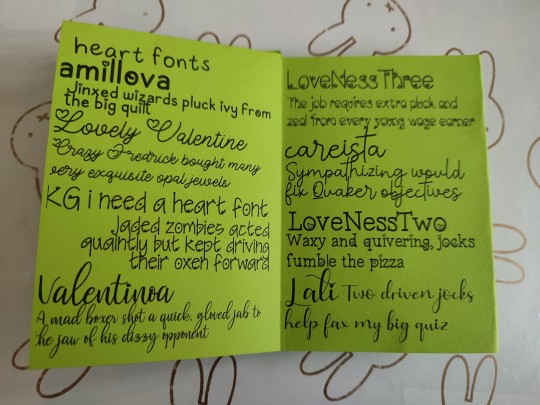 heart fonts
amillova
Jinxed wizards pluck ivy from
the big quilt
Lovely Valentine
Crazy Fredrick bought many
very exquisite opal jewels
KG i need a heart font
Jaded zombies acted
quaintly but kept driving
their oxen forward
Valentinoa
A mad boxer shot a quick, gloved jab to
the jaw of his dizzy opponent
LoveNessThree
The job requires extra pluck and
zeal from every young wage earner
careista
Sympathizing would
fix Quaker objectives
LoveNessTwo
Waxy and quivering, jocks
fumble the pizza
Lali Two driven jocks
help fax my big quiz